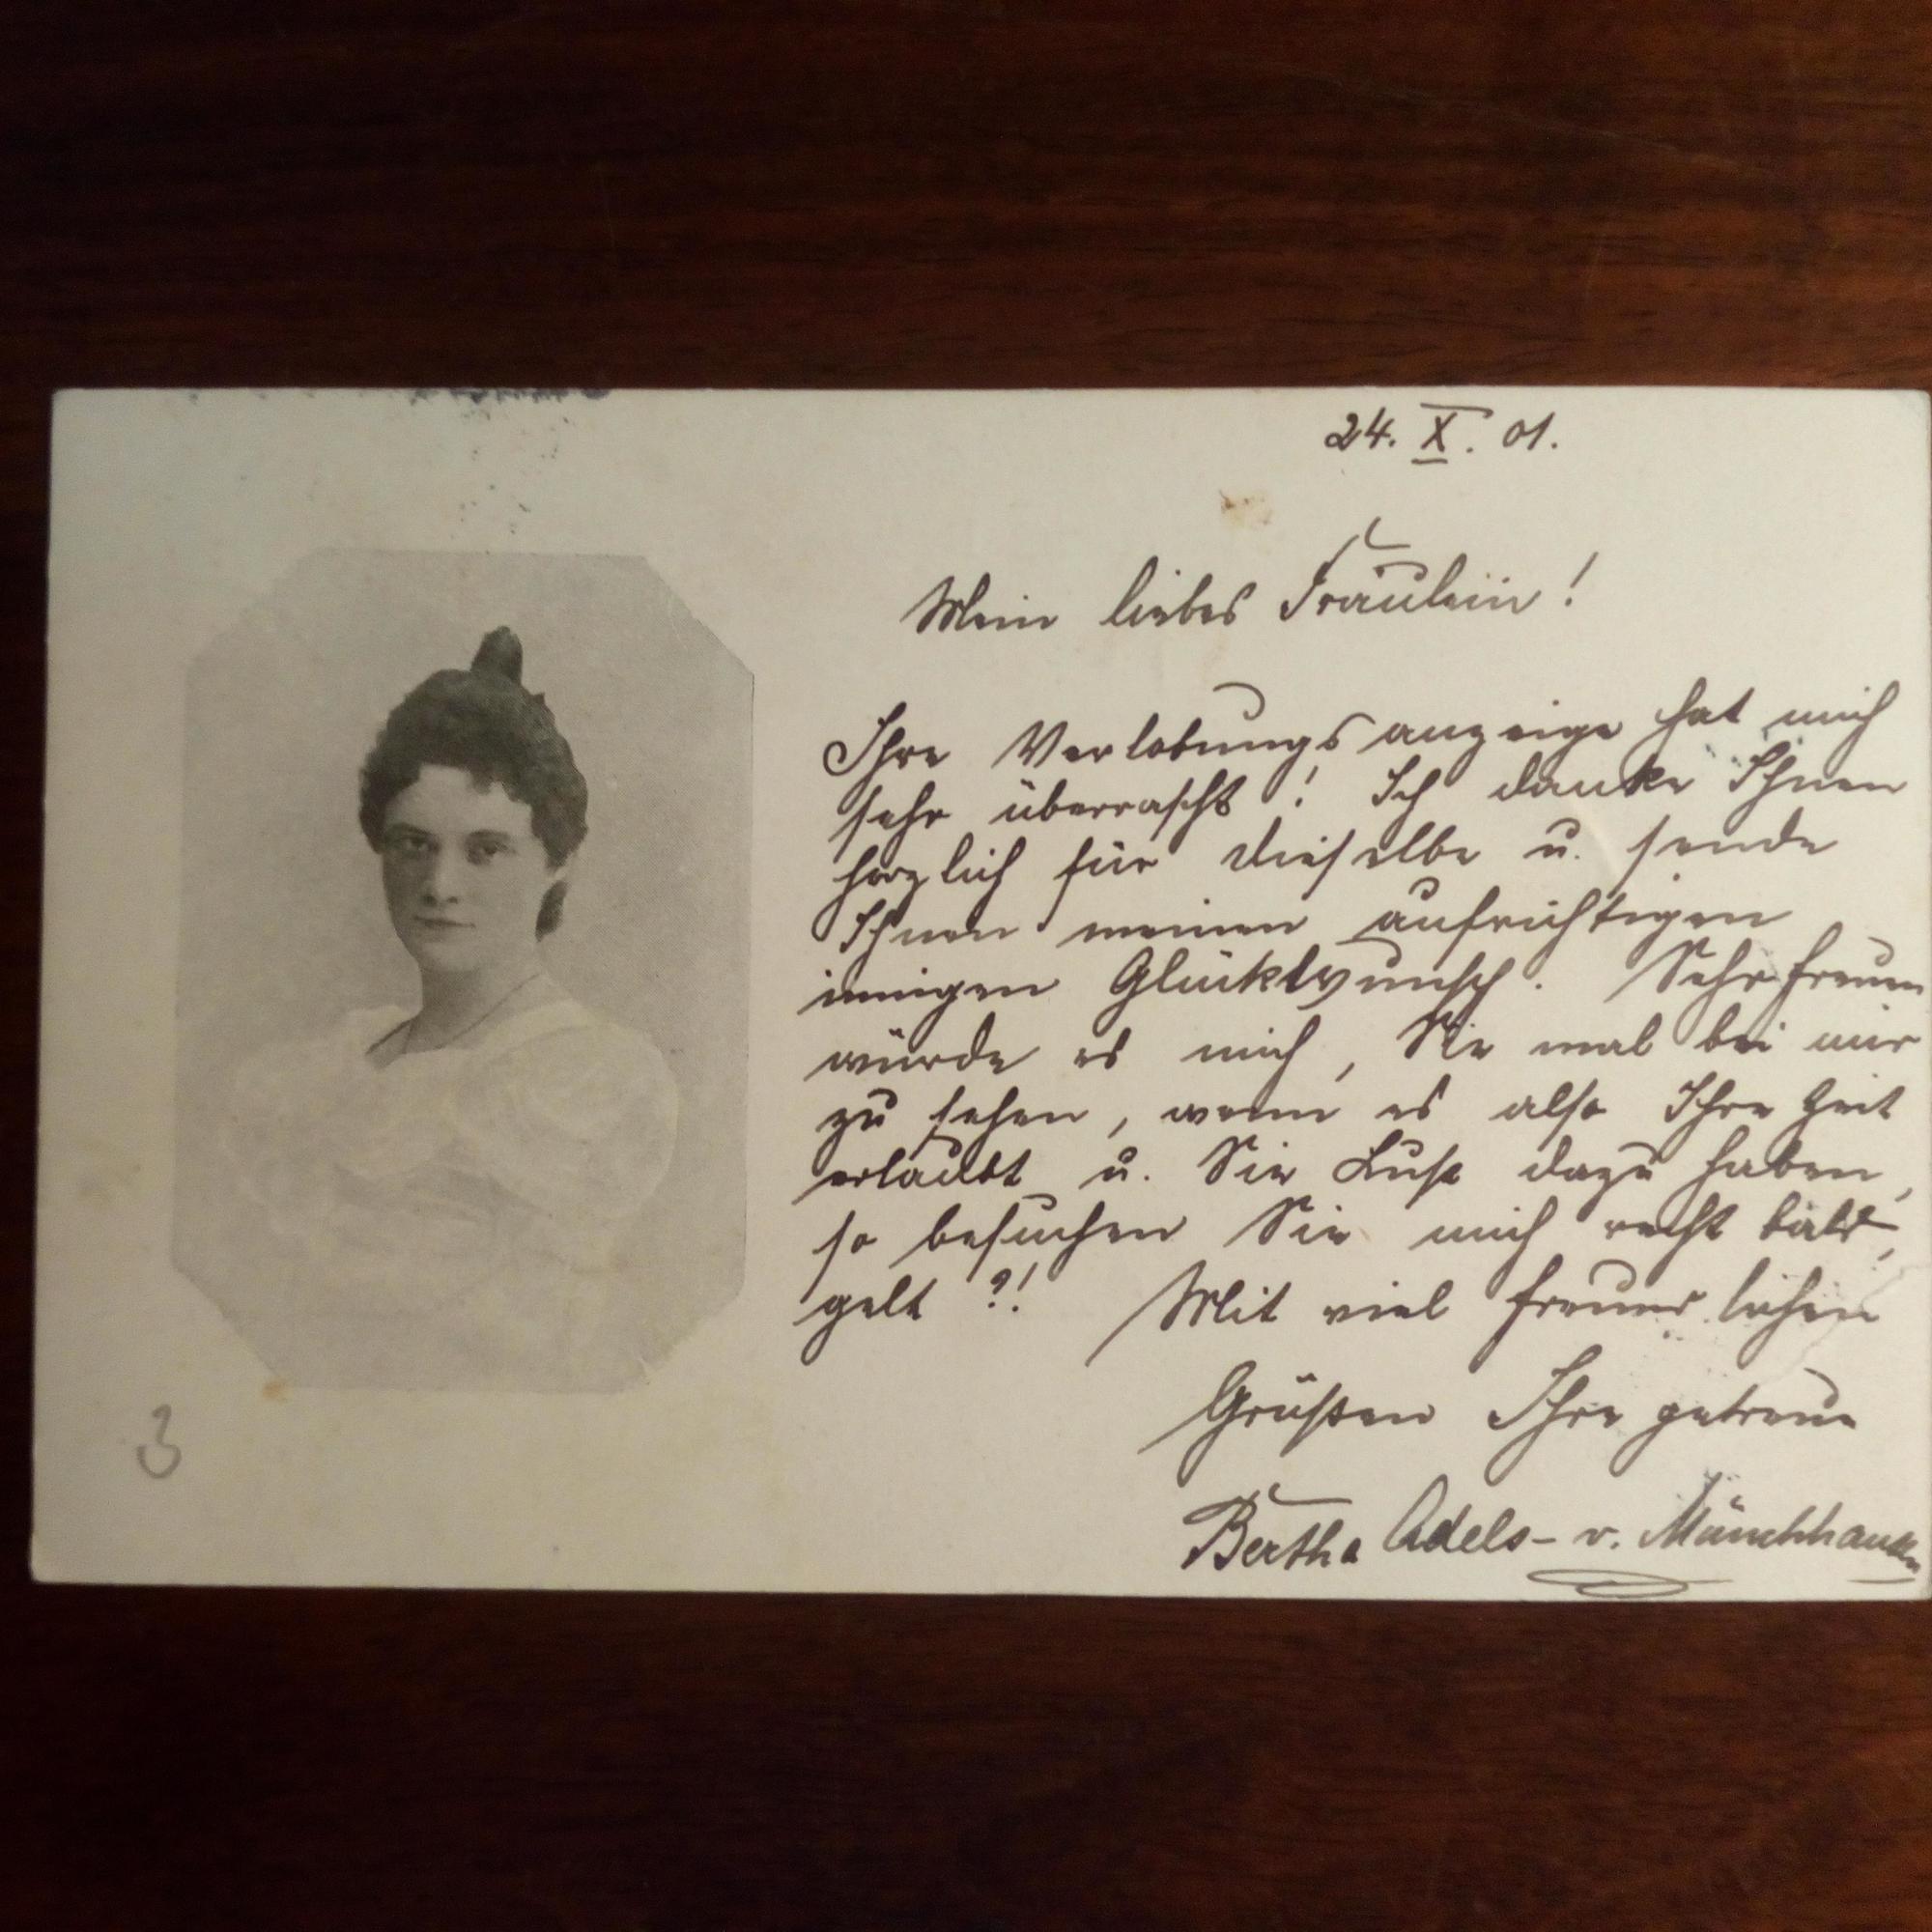 24. X. 01.
Mein liebes Fräulein!
Ihre Verlobungsanzeige hat mich
sehr überrascht! Ich danke Ihnen
herzlich für dieselbe u. sende
Ihnen meinen aufrichtigen
innigen Glückwunsch. Sehr freuen
würde es mich, Sie mal bei mir
zu sehen, wenn es also Ihre Zeit
erlaubt u. Sie Lust dazu haben,
so besuchen Sie mich recht bald,
gelt?! Mit viel freundlichen
Grüßen Ihre getreue
Bertha Adels- v. Münchhausen
3